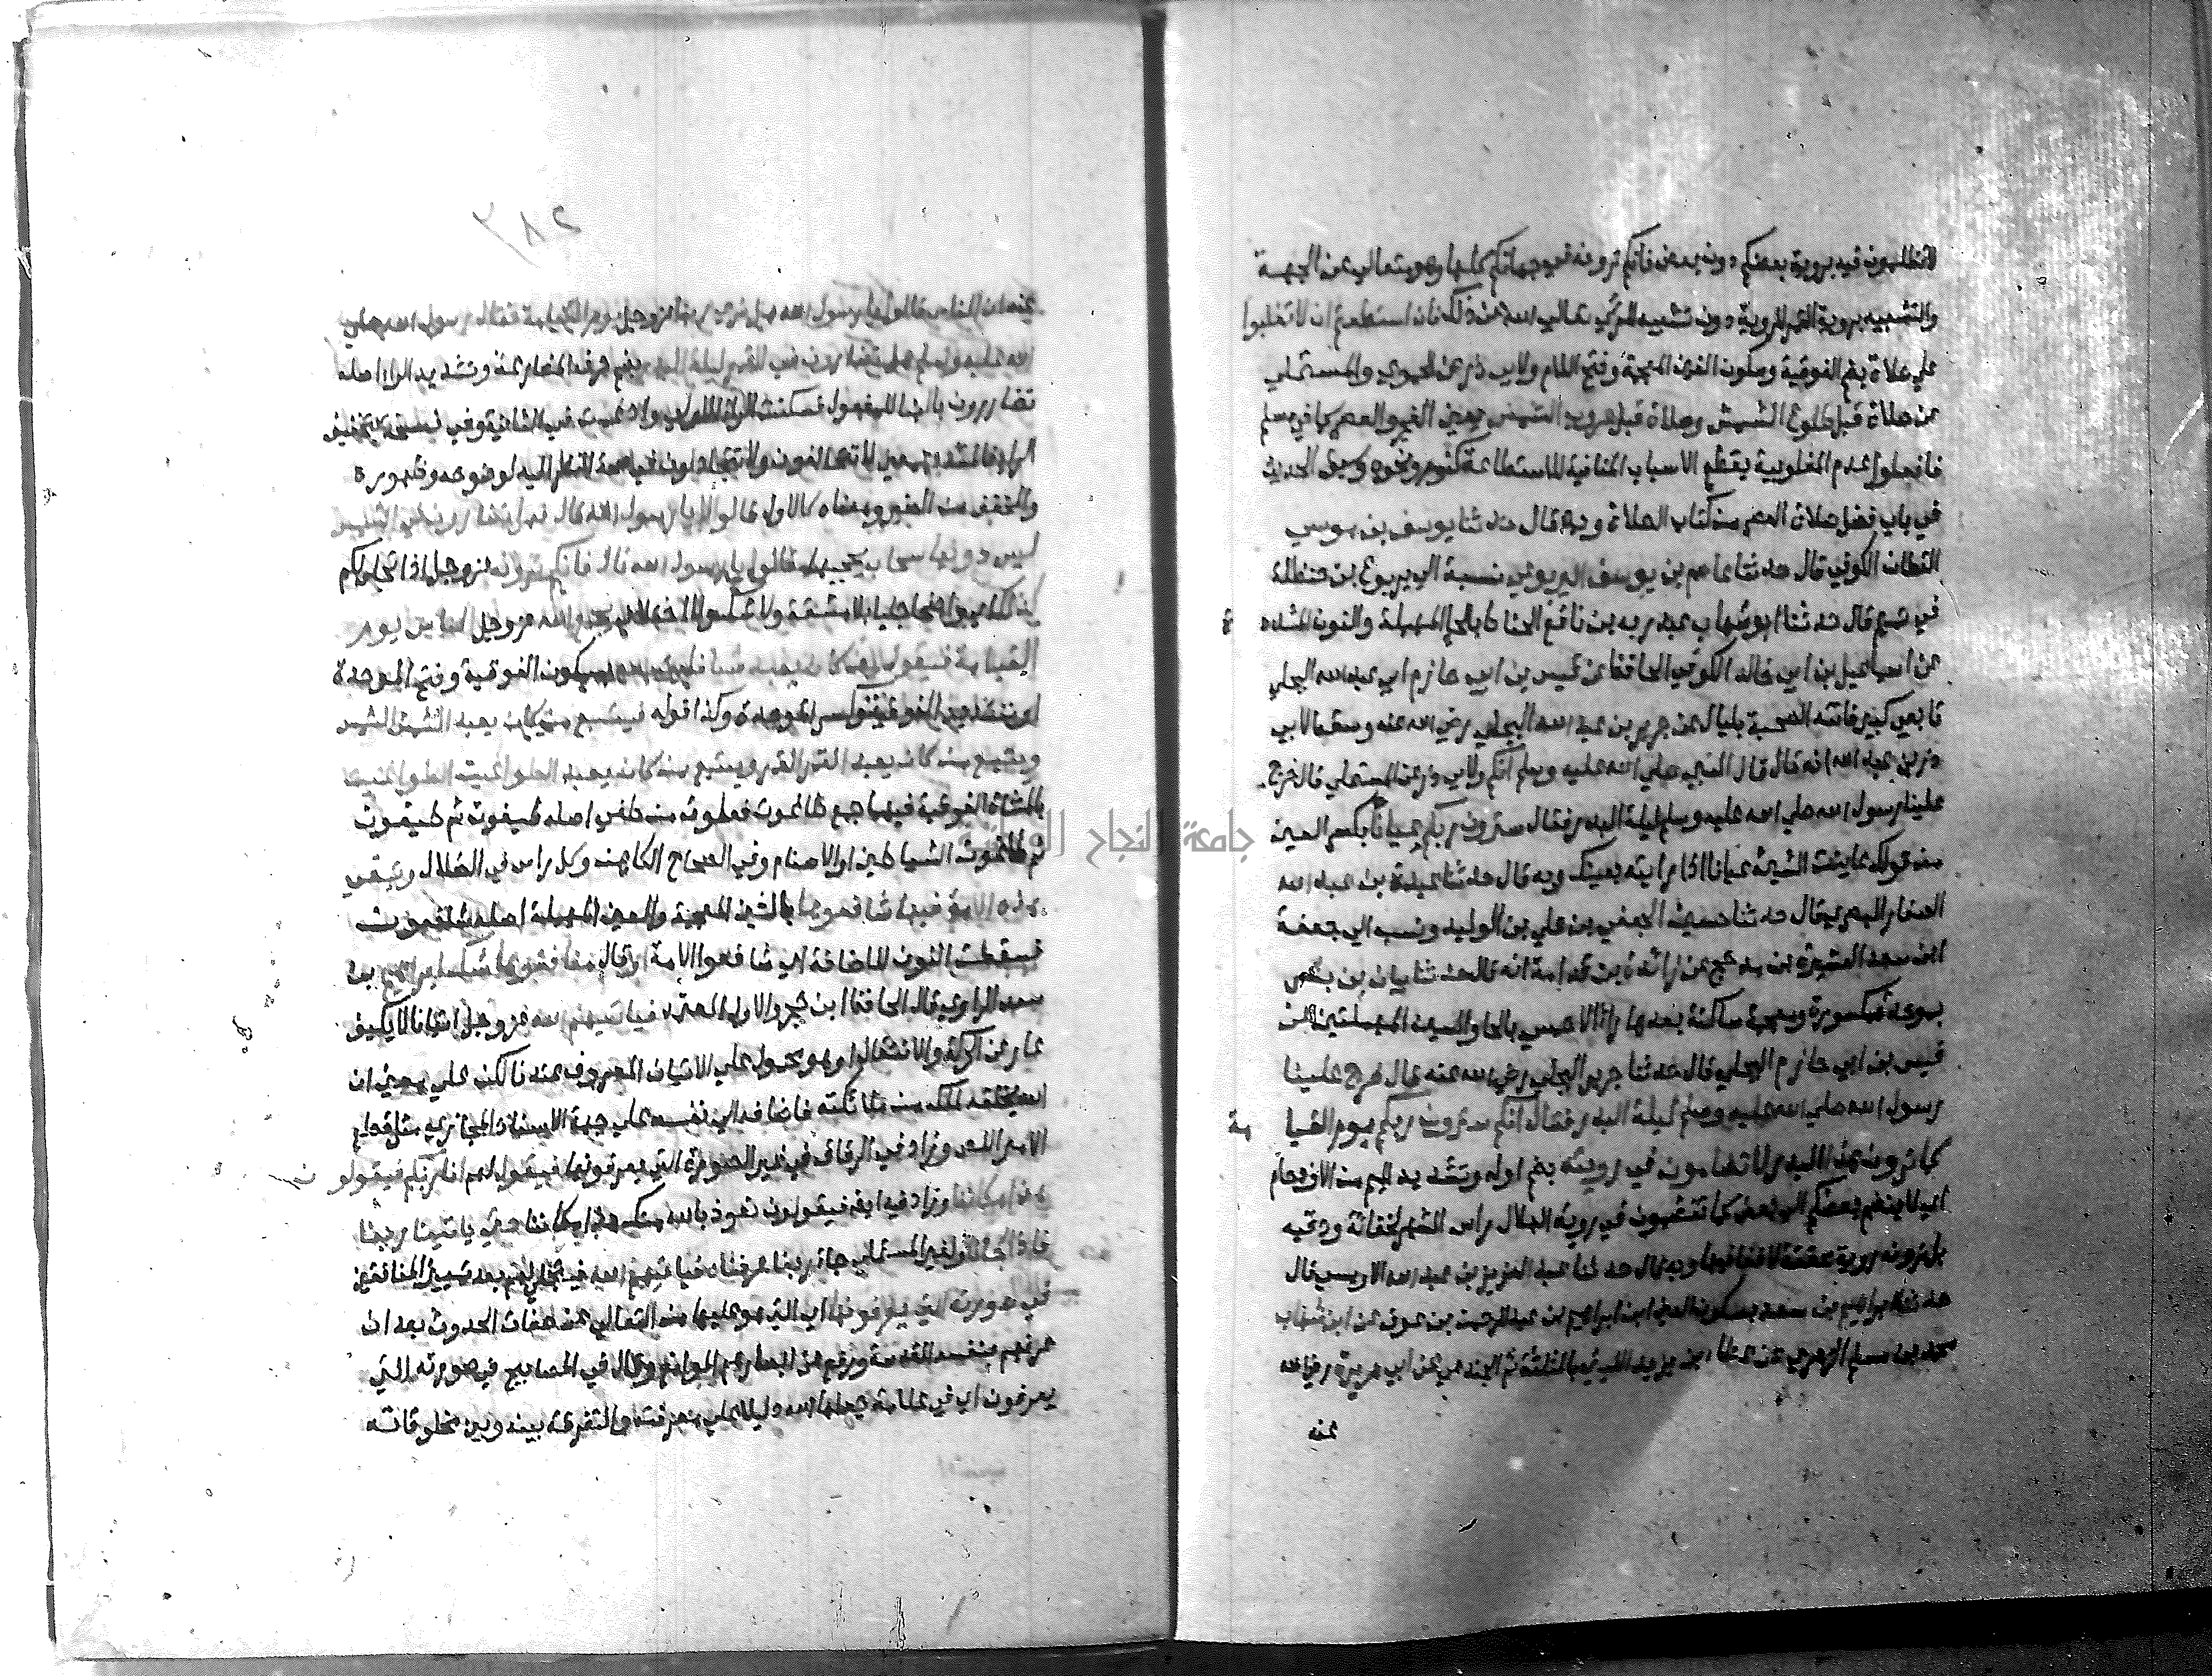 لا تظلمون فيه بروية بعضكم دون بعض فانكم ترونه في جهاتكم كلها وهو متعالي عن الجهة
والتشبيه بروية القمر للروية دون تشبيه المرئي تعالي الله عن ذلك فان استطعتم ان لا تغلبوا
علي صلاة بضم الفوقية وسكون الغين المعجمة وفتح اللام ولابي ذر عن الحموي والمستملي
عن صلاة قبل طلوع الشمس وصلاة قبل غروب الشمس يعني الفجر والعصر كما في مسلم
فافعلوا عدم المغلوبية بقطع الاسباب المنافية للاستطاعة كنوم ونحوه وسبق الحديث
في باب فضل صلاة العصر من كتاب الصلاة وبه قال حدثنا يوسف بن موسي
القطان الكوفي قال حدثنا عاصم بن يوسف اليربوعي نسبة الي يربوع بن حنظلة
في تميم قال حدثنا ابو شهاب عبد ربه بن نافع الحناط بالحا المهملة والنون المشددة
عن اسماعيل بن ابي خالد الكوفي الحافظ عن قيس بن ابي حازم ابي عبد الله البجلي
تابعي كبير فاتته الصحبة بليال عن جرير بن عبد الله البجلي رضي الله عنه وسقط لابي
ذر بن عبد الله انه قال قال النبي صلي الله عليه وسلم انكم ولابي ذر عن المستملي قال خرج
علينا رسول الله صلي الله عليه وسلم ليلة البدر فقال سترون ربكم عيانا بكسر العين
من قولك عاينت الشي عيانا اذا رايته بعينك وبه قال حدثنا عبدة بن عبد الله
الصفار البصري قال حدثنا حسين الجعفي بن علي بن الوليد ونسب الي جعفة
ابن سعد العشيرة بن مذحج عن زائدة بن قدامة انه قال حدثنا بيان بن بشر
بموحدة مكسورة ومعجمة ساكنة بعدها را الاحمسي بالحا والسين المهملتين عن
قيس بن ابي حازم البجلي قال حدثنا جرير البجلي رضي الله عنه قال خرج علينا
رسول الله صلي الله عليه وسلم ليلة البدر فقال انكم سترون ربكم يوم القيامة
كما ترون هذا البدر لا تضامون في رويته بضم اوله وتشديد الميم من الازدحام
اي لا ينضم بعضكم الي بعض كما تنضمون في روية الهلال راس الشهر لخفائه ودقته
بل ترونه روية محققة لا خفا فيها وبه قال حدثنا عبد العزيز بن عبد الله الاويسي قال
حدثنا ابراهيم بن سعد بسكون العين ابن ابراهيم بن عبد الرحمن بن عوف عن ابن شهاب
محمد بن مسلم الزهري عن عطا بن يزيد الليثي بالمثلثة ثم الجندعي عن ابي هريرة رضي الله
عنه
٣٨٢
عنه ان الناس قالوا يا رسول الله هل نري ربنا عز وجل يوم القيامة فقال رسول الله صلي
الله عليه وسلم هل تضارون في القمر ليلة البدر بضم حرف المضارعة وتشديد الرا اصله
تضاررون بالبنا للمفعول فسكنت الرا الاولي وادغمت في الثانية وفي نسخة بتخفيف
الرا فالمشدد بمعني لا تتخالفون ولا تتجادلون في صحة النظر اليه لوضوحه وظهوره
والمخفف من الضير ومعناه كالاول قالوا لا يا رسول الله قال فهل تضارون في الشمس
ليس دونها سحاب يحجبها قالوا لا يا رسول الله قال فانكم ترونه عز وجل اذا تجلي لكم
كذلك اي واضحا جليا بلا مشقة ولا شك ولا اختلاف يجمع الله عز وجل الناس يوم
القيامة فيقول من كان يعبد شيا فليتبعه بسكون الفوقية وفتح الموحدة
او بتشديد الفوقية وكسر الموحدة وكذا قوله فيتبع من كان يعبد الشمس الشمس
ويتبع من كان يعبد القمر القمر ويتبع من كان يعبد الطواغيت الطواغيت
بالمثناة الفوقية فيهما جمع طاغوت فعلوت من طغي اصله طغيوت ثم طيغوت
ثم طاغوت الشياطين او الاصنام وفي الصحاح الكاهن وكل راس في الضلال وتبقي
هذه الامة فيها شافعوها بالشين المعجمة والعين المهملة اصله شافعون
فسقطت النون للاضافة اي شافعوا الامة او قال منافقوها شك ابراهيم بن
سعد الراوي قال الحافظ ابن حجر والاول المعتمد فياتيهم الله عز وجل اتيانا لا يكيف
عار عن الحركة والانتقال او هو محمول علي الاتيان المعروف عندنا لكن علي معني ان
الله يخلقه لملك من ملائكته فاضافه الي نفسه علي جهة الاسناد المجازي مثل قطع
الامير اللص وزاد في الرقاق في غير الصورة التي يعرفونها فيقول لهم انا ربكم فيقولون
هذا مكاننا وزاد فيه ايضا فيقولون نعوذ بالله منك هذا مكاننا حتي ياتينا ربنا
فاذا جانا ولغير المستملي جا ربنا عرفناه فياتيهم الله فيتجلي لهم بعد تمييز المنافقين
في صورته التي يعرفونها اي التي هو عليها من التعالي عن صفات الحدوث بعد ان
عرفهم بنفسه المقدسة ورفع عن ابصارهم الموانع وقال في المصابيح في صورته التي
يعرفون اي في علامة جعلها الله دليلا علي معرفته والتفرقة بينه وبين مخلوقاته
جامعة النجاح